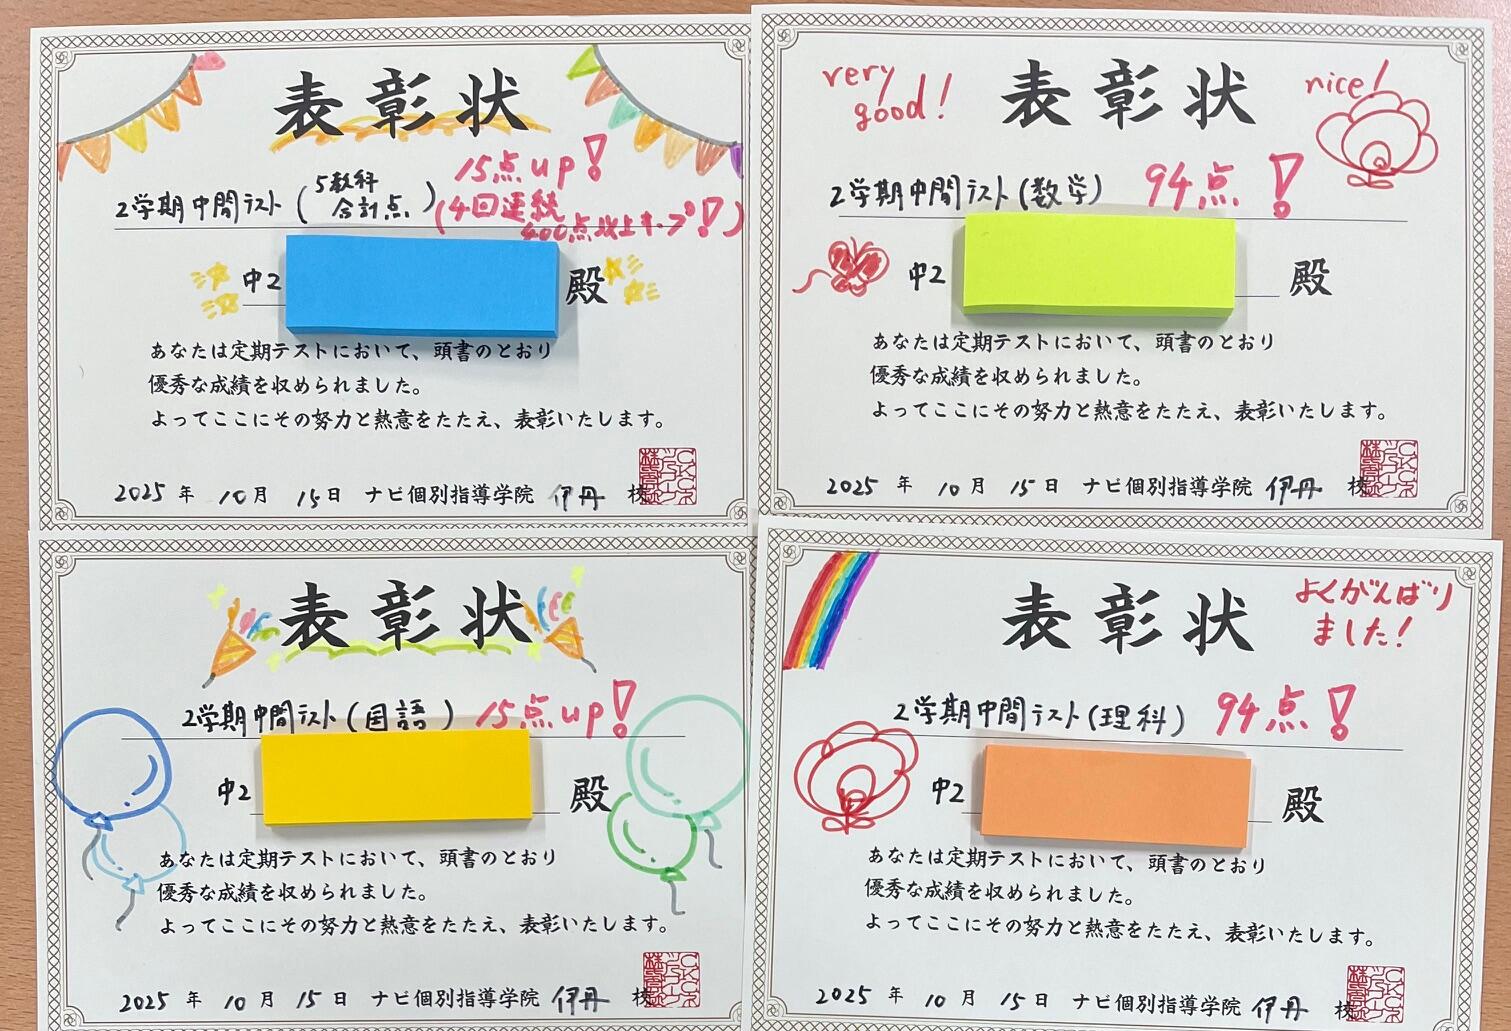 表彰状
15点up!
2学期中間テスト(5教科合計点)
(4回連続
400点以上キープ!)
中2
殿
あなたは定期テストにおいて、頭書のとおり
優秀な成績を収められました。
よってここにその努力と熱意をたたえ、表彰いたします。
2025年10月15日 ナビ個別指導学院 伊丹 校
very good!
表彰状
nice!
2学期中間テスト(数学) 94点!
中2
殿
あなたは定期テストにおいて、頭書のとおり
優秀な成績を収められました。
よってここにその努力と熱意をたたえ、表彰いたします。
2025年10月15日 ナビ個別指導学院 伊丹 校
表彰状
2学期中間テスト(国語) 15点up!
中2
殿
あなたは定期テストにおいて、頭書のとおり
優秀な成績を収められました。
よってここにその努力と熱意をたたえ、表彰いたします。
2025年10月15日 ナビ個別指導学院 伊丹 校
表彰状
よくがんばり
ました!
2学期中間テスト(理科) 94点!
中2
殿
あなたは定期テストにおいて、頭書のとおり
優秀な成績を収められました。
よってここにその努力と熱意をたたえ、表彰いたします。
2025年10月15日 ナビ個別指導学院 伊丹 校